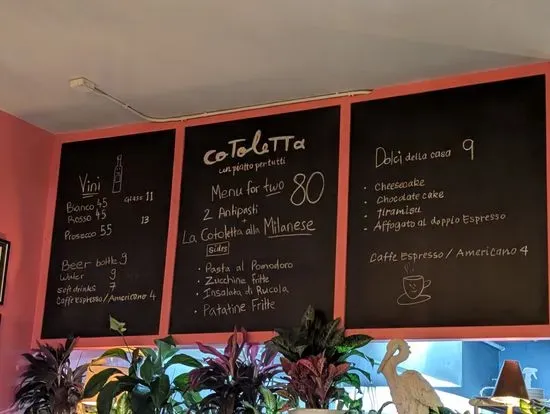 Vini
Bianco 45 Glass 11
Rosso 45
Prosecco 55 13
Beer bottle 9
Water 9
soft drinks 7
Caffe Espresso/Americano 4
CoToLeTTa
un piatto per tutti
Menu for two 80
2 Antipasti
La Cotoletta alla Milanese
Sides
• Pasta al Pomodoro
• Zucchine Fritte
• Insalata di Rucola
• Patatine Fritte
Dolci della casa 9
• Cheesecake
• Chocolate cake
• Tiramisu
• Affogato al doppio Espresso
Caffe Espresso/Americano 4